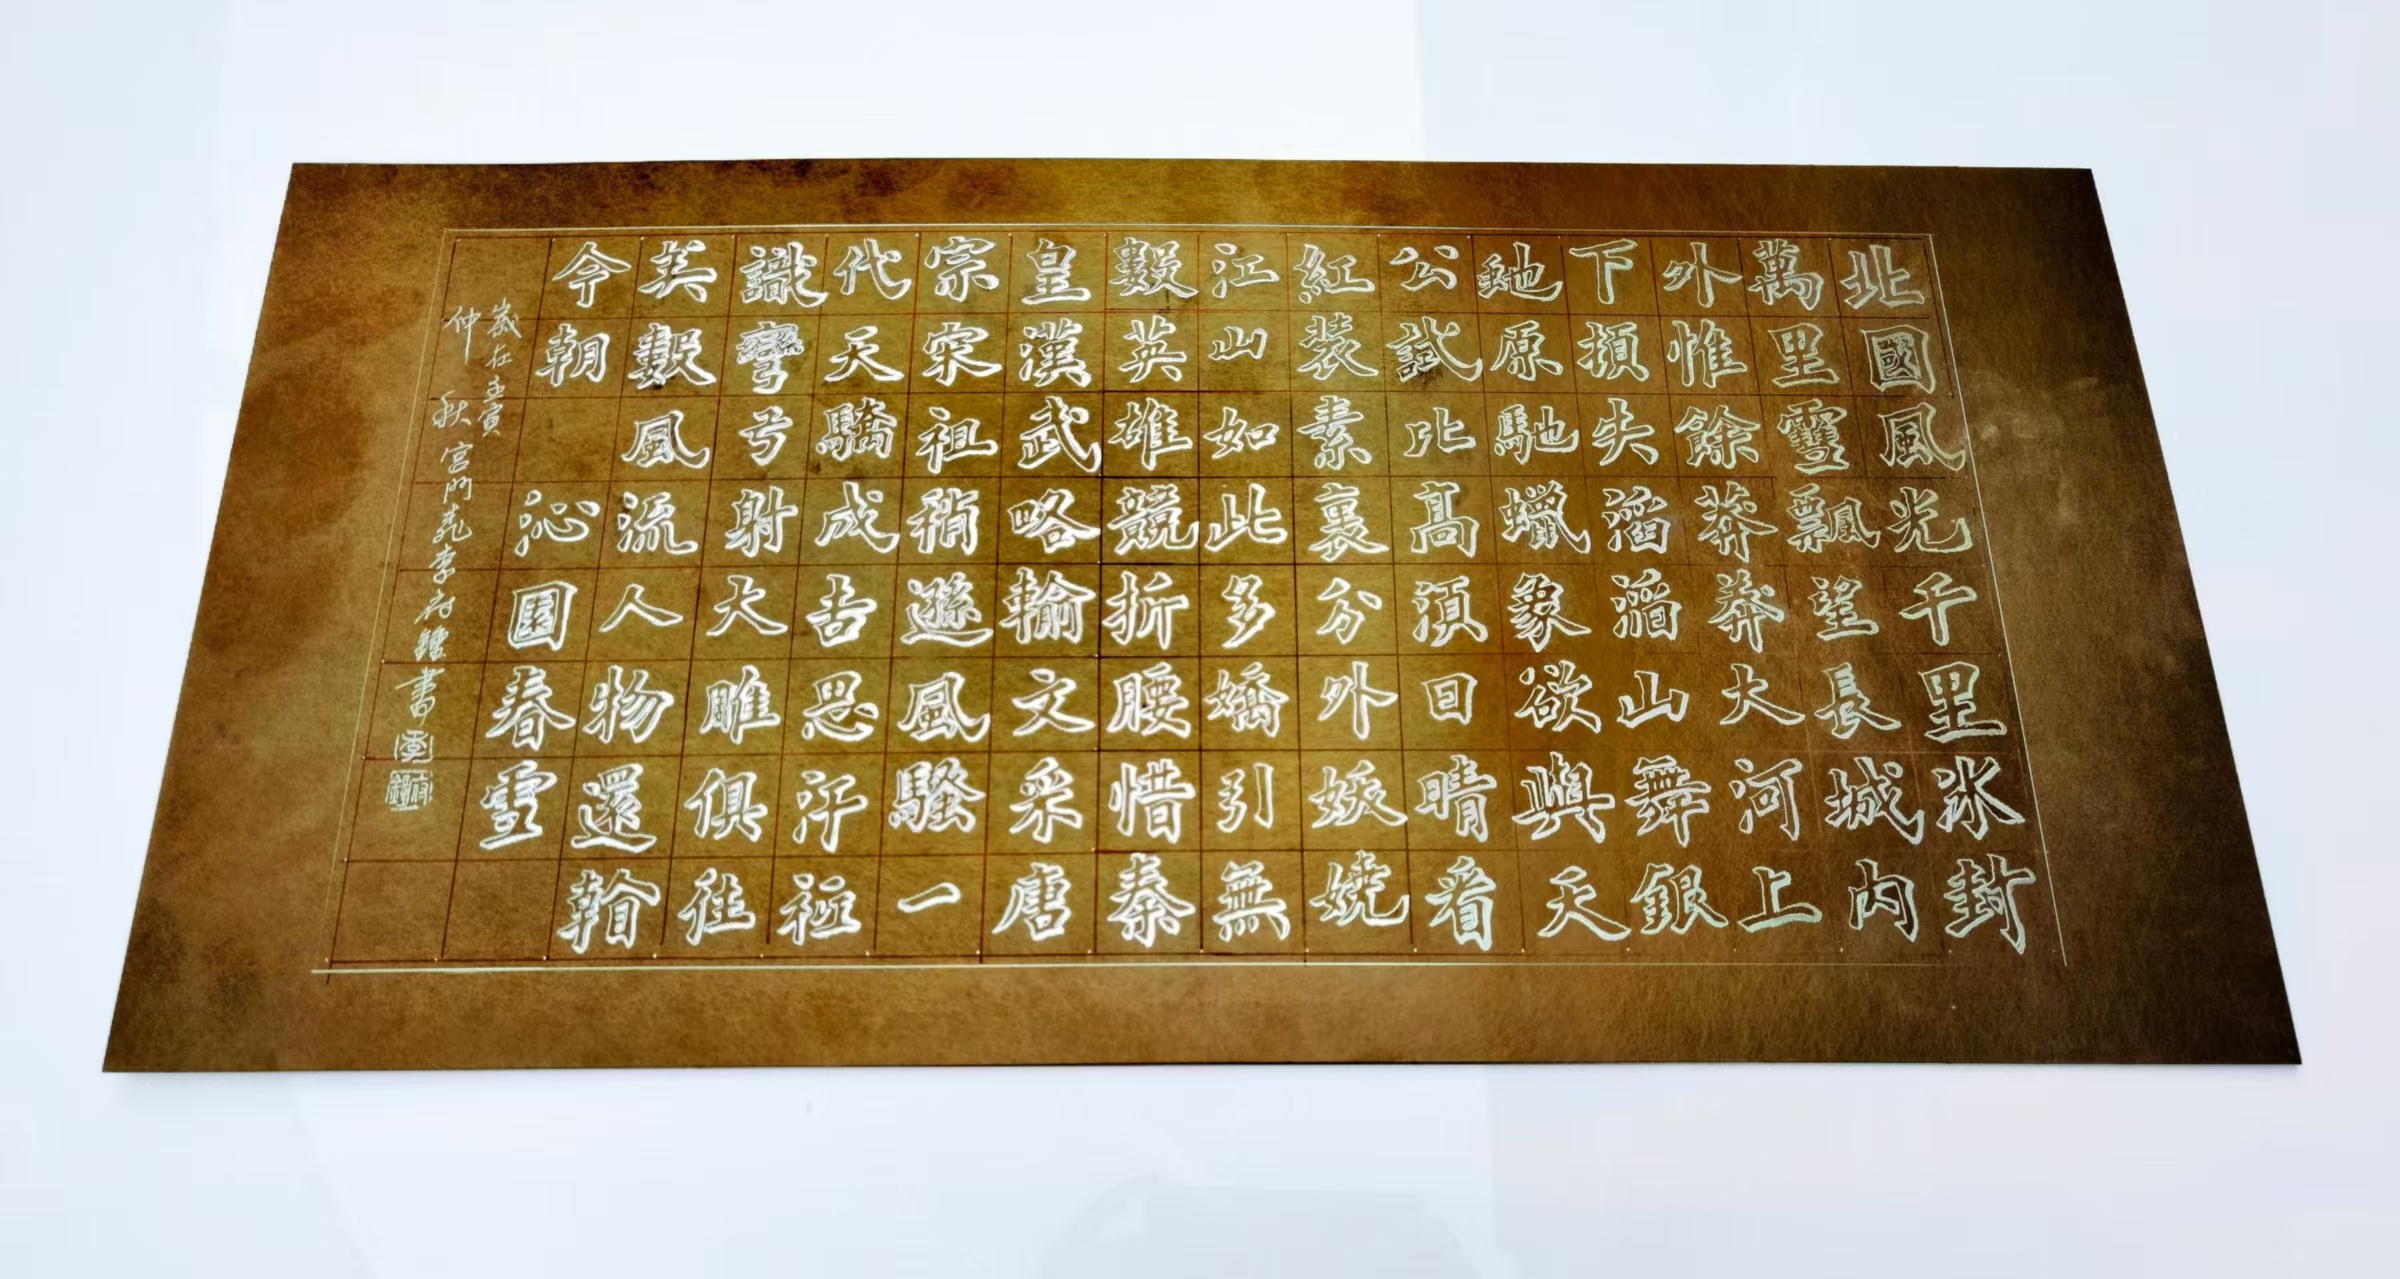 北國風光千里冰封
萬里雪飄望長城内
外惟餘莽莽大河上
下頓失滔滔山舞銀
虵原馳蠟象欲與天
公試比高須日晴看
紅裝素裹分外妖嬈
江山如此多嬌引無
數英雄競折腰惜秦
皇漢武略輸文采唐
宗宋祖稍遜風騷一
代天驕成吉思汗衹
識彎弓射大雕俱往
矣數風流人物還看
今朝 沁園春雪
歲在壬寅
仲秋宮門堯李府鍾書